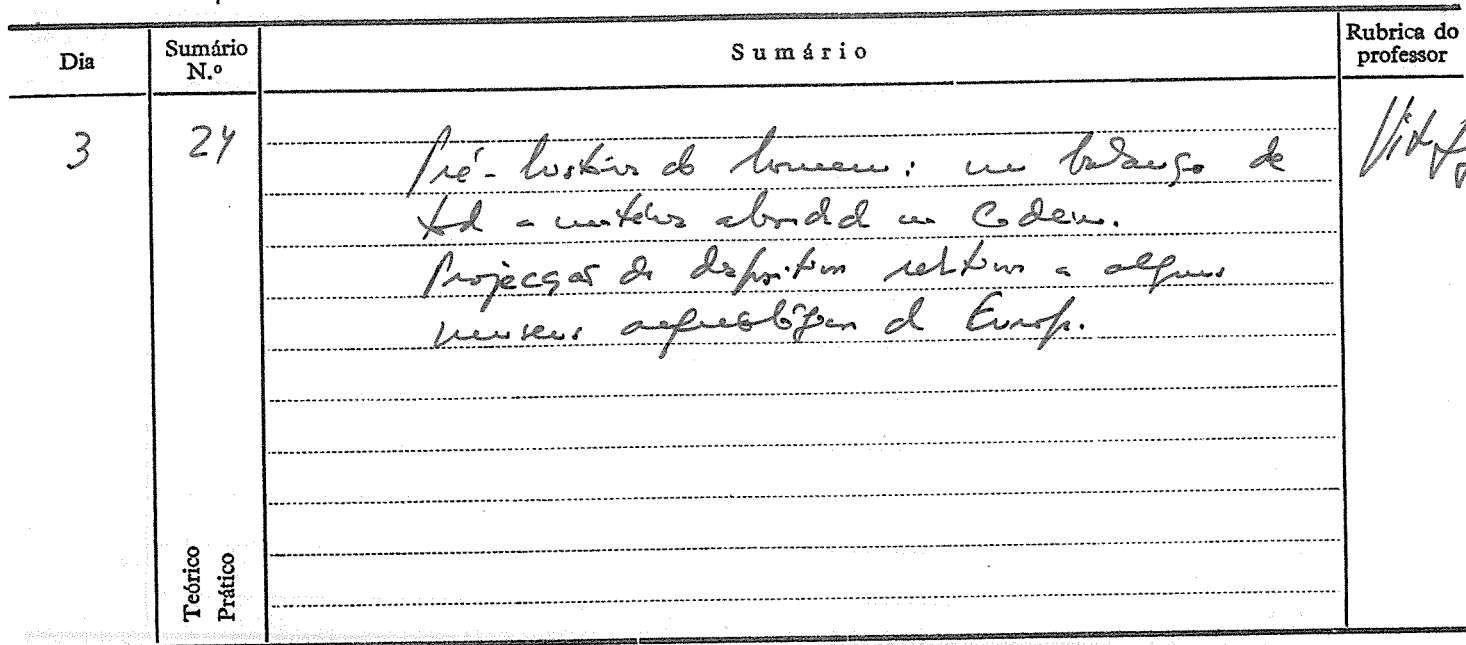 Dia Sumário N.º Sumário Rubrica do professor
3 24 Pré-história do homem: um balanço de
toda a matéria abordada na Cadeira.
Projecção de diapositivos relativos a alguns
museus arqueológicos da Europa.
Teórico
Prático